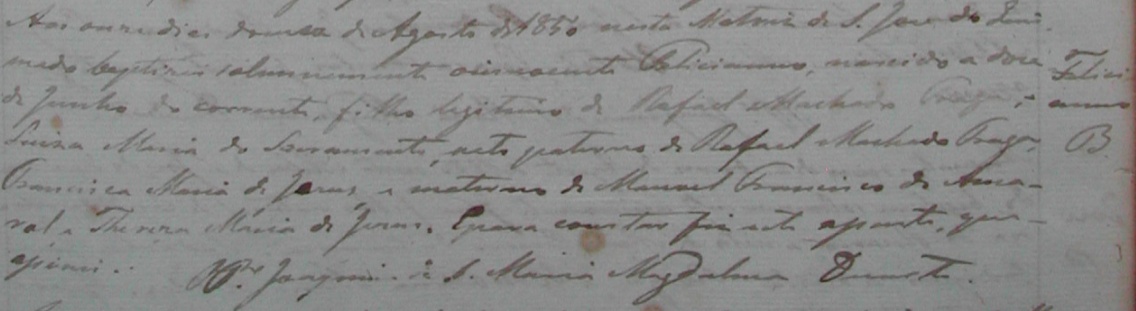 Aos onze dias do mez de Agosto de 1850 nesta Matriz de S. Jose do
mado baptizei solemnemente o innocente Felicianno, nascido a doze
de Junho do corrente, filho legitimo de Rafael Machado Fraga, e
Luiza Maria do Sacramento, neto paterno de Rafael Machado Fraga,
Francisca Maria de Jesus, e materno de Manoel Francisco de Ama-
ral e Thereza Maria de Jesus. E para constar fiz este assento, que
assinei.
Joaquim de S. Maria Magdalena Duarte.
Felici
anno
B.